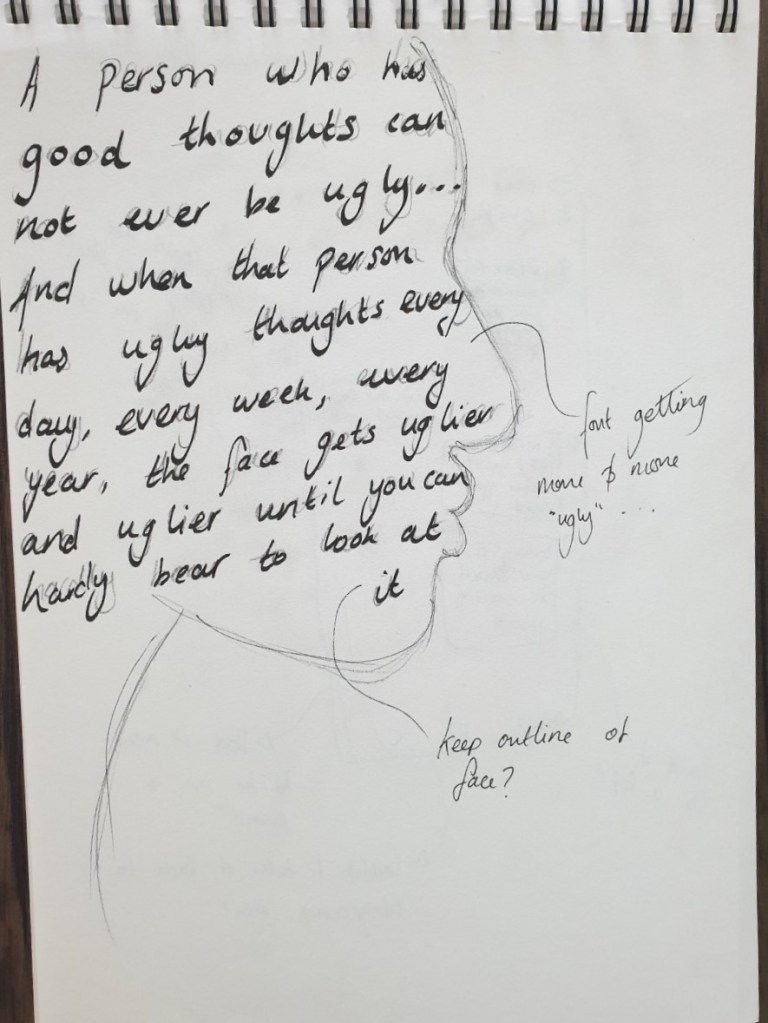 A person who has
good thoughts can
not ever be ugly...
And when that person
has ugly thoughts every
day, every week, every
year, the face gets uglier
and uglier until you can
hardly bear to look at
it
font getting
more & more
"ugly" ...
keep outline of
face?